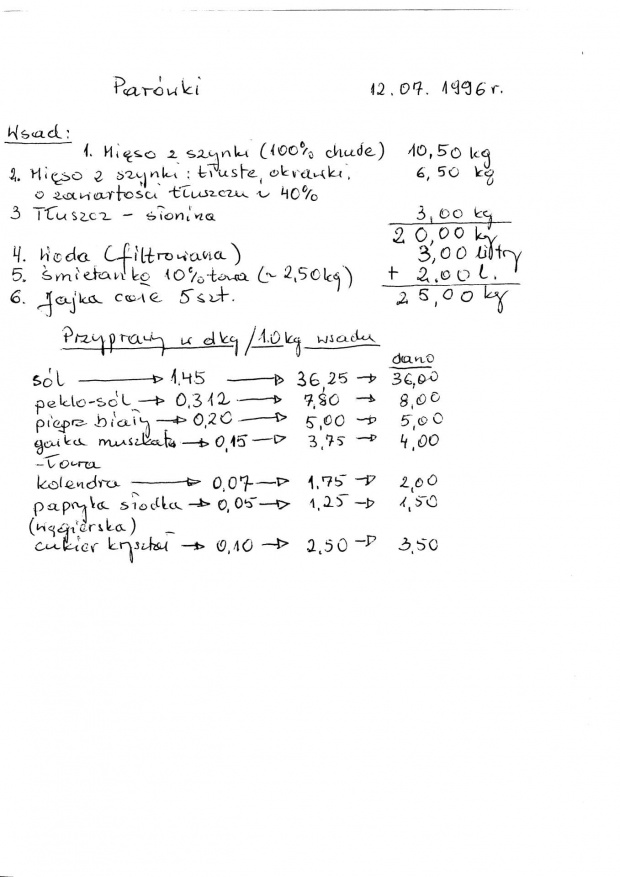 Parówki 12.07.1996r.
Wsad:
1. Mięso z szynki (100% chude) 10,50 kg
2. Mięso z szynki: tłuste, okrawki, 6,50 kg
o zawartości tłuszczu 40%
3 Tłuszcz – słonina 3,00 kg
20,00 kg
4. Woda (filtrowana) 3,00 litry
5. śmietanka 10% towa (~2,50kg) + 2.00 l.
6. Jajka całe 5 szt. 25,00 kg
Przyprawy w dkg/1.0kg wsadu
dano
sól → 1,45 → 36,25 → 36,00
peklo-sól → 0,312 → 7,80 → 8,00
pieprz biały → 0,20 → 5,00 → 5,00
gałka muszkato → 0,15 → 3,75 → 4,00
-łowa
kolendra → 0,07 → 1,75 → 2,00
papryka słodka → 0,05 → 1,25 → 1,50
(węgierska)
cukier kryształ → 0,10 → 2,50 → 3,50